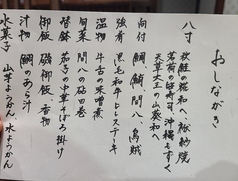 おしながき
八寸
秋鮭の糀和へ、松前焼
茗荷の甘酢寿司、沖縄もずく
天草大王の山葵和へ
向付 鯛、鮪、間八、烏賊
強肴 黒毛和牛ヒレステーキ
温物 牛舌の味噌煮
旬菜 間八の砧田巻
替鉢 茄子の中華そぼろ掛け
御飯 磯御飯、香物
汁物 鯛のあら汁
水菓子 山芋ようかん、水ようかん